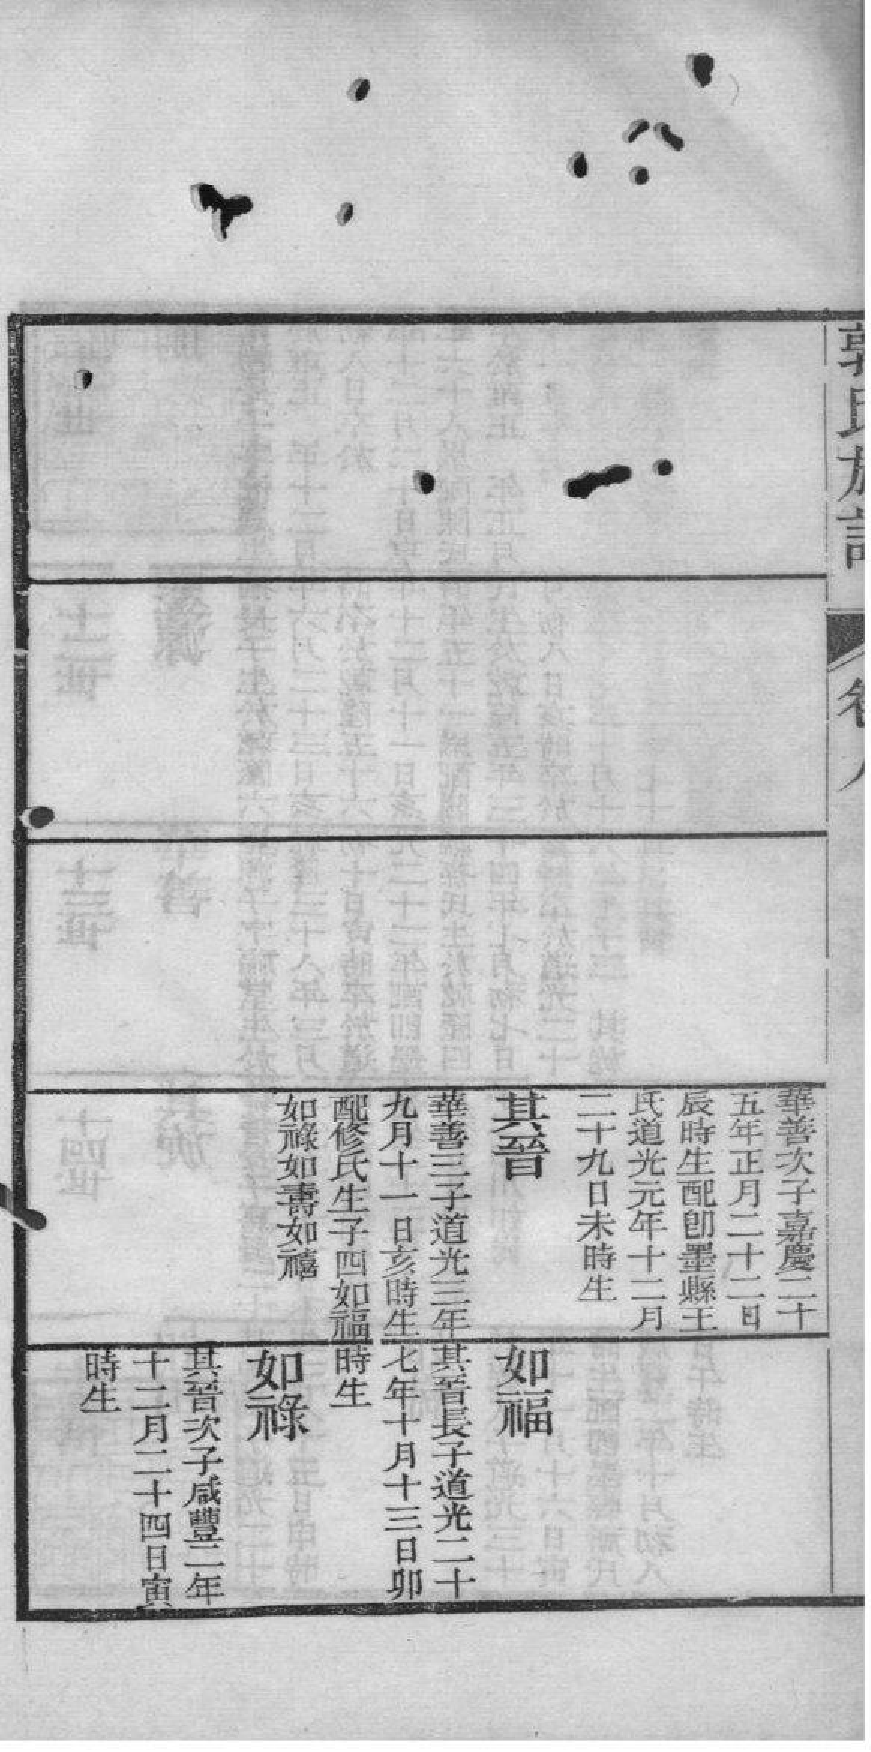 郭氏族譜
卷八
華善次子嘉慶二十
五年正月二十二日
辰時生配卽墨縣王
氏道光元年十二月
二十九日未時生
其晉
華善三子道光三年
九月十一日亥時生
配修氏生子四如福
如祿如壽如禧
如福
其晉長子道光二十
七年十月十三日卯
時生
如祿
其晉次子咸豐二年
十二月二十四日寅
時生